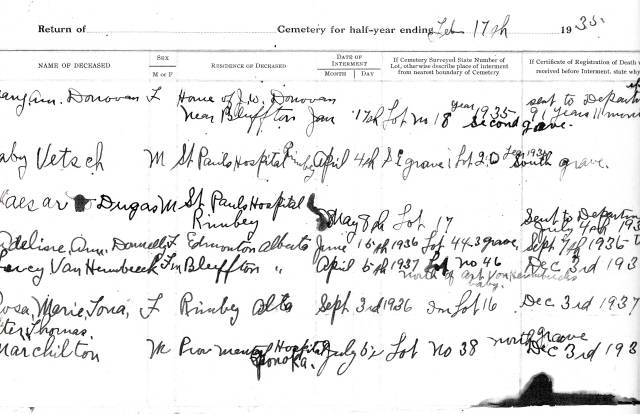 Return of Cemetery for half-year ending Feb 17th 1935.
NAME OF DECEASED
SEX
M or F
RESIDENCE OF DECEASED
DATE OF INTERMENT
MONTH DAY
If Cemetery Surveyed State Number of
Lot, otherwise describe place of interment
from nearest boundary of Cemetery
If Certificate of Registration of Death
received before Interment, state
Ann. Donovan F Home of J.W. Donovan sent to Depart
Near Bluffton Jan 17th Lot no 18 year 1935 second grave. 91 years 11 mon
aby Vetsch M St Pauls Hospital Rimbey April 4th S E grave Lot 20 South grave.
aesar Dugas M St. Pauls Hospital
Rimbey May 8th Lot 17 Sent to Departm
July 4th 193
Ann, Donnelly F Edmonton Alberta June 1936 Lot 44 3 grave, Sept 7th 1936
ercy Van Hembreck M Bluffton " April 5th 1937 Lot no 46 Dec 3rd 193
north of
baby.
osa, Marie, Iona, F Rimbey Alta Sept 3rd 1936 In Lot 16 Dec 3rd 1937
ter, Thomas.
Marchilton M Prov Mental Hospital July Lot No 38 north grave
Ponoka. Dec 3rd 193